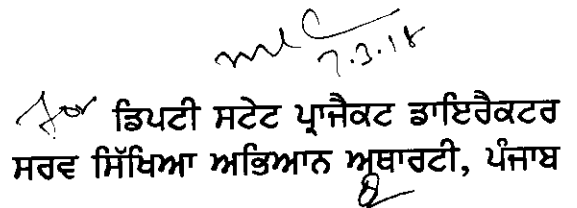 7.3.18
for ਡਿਪਟੀ ਸਟੇਟ ਪ੍ਰਾਜੈਕਟ ਡਾਇਰੈਕਟਰ
ਸਰਵ ਸਿੱਖਿਆ ਅਭਿਆਨ ਅਥਾਰਟੀ, ਪੰਜਾਬ